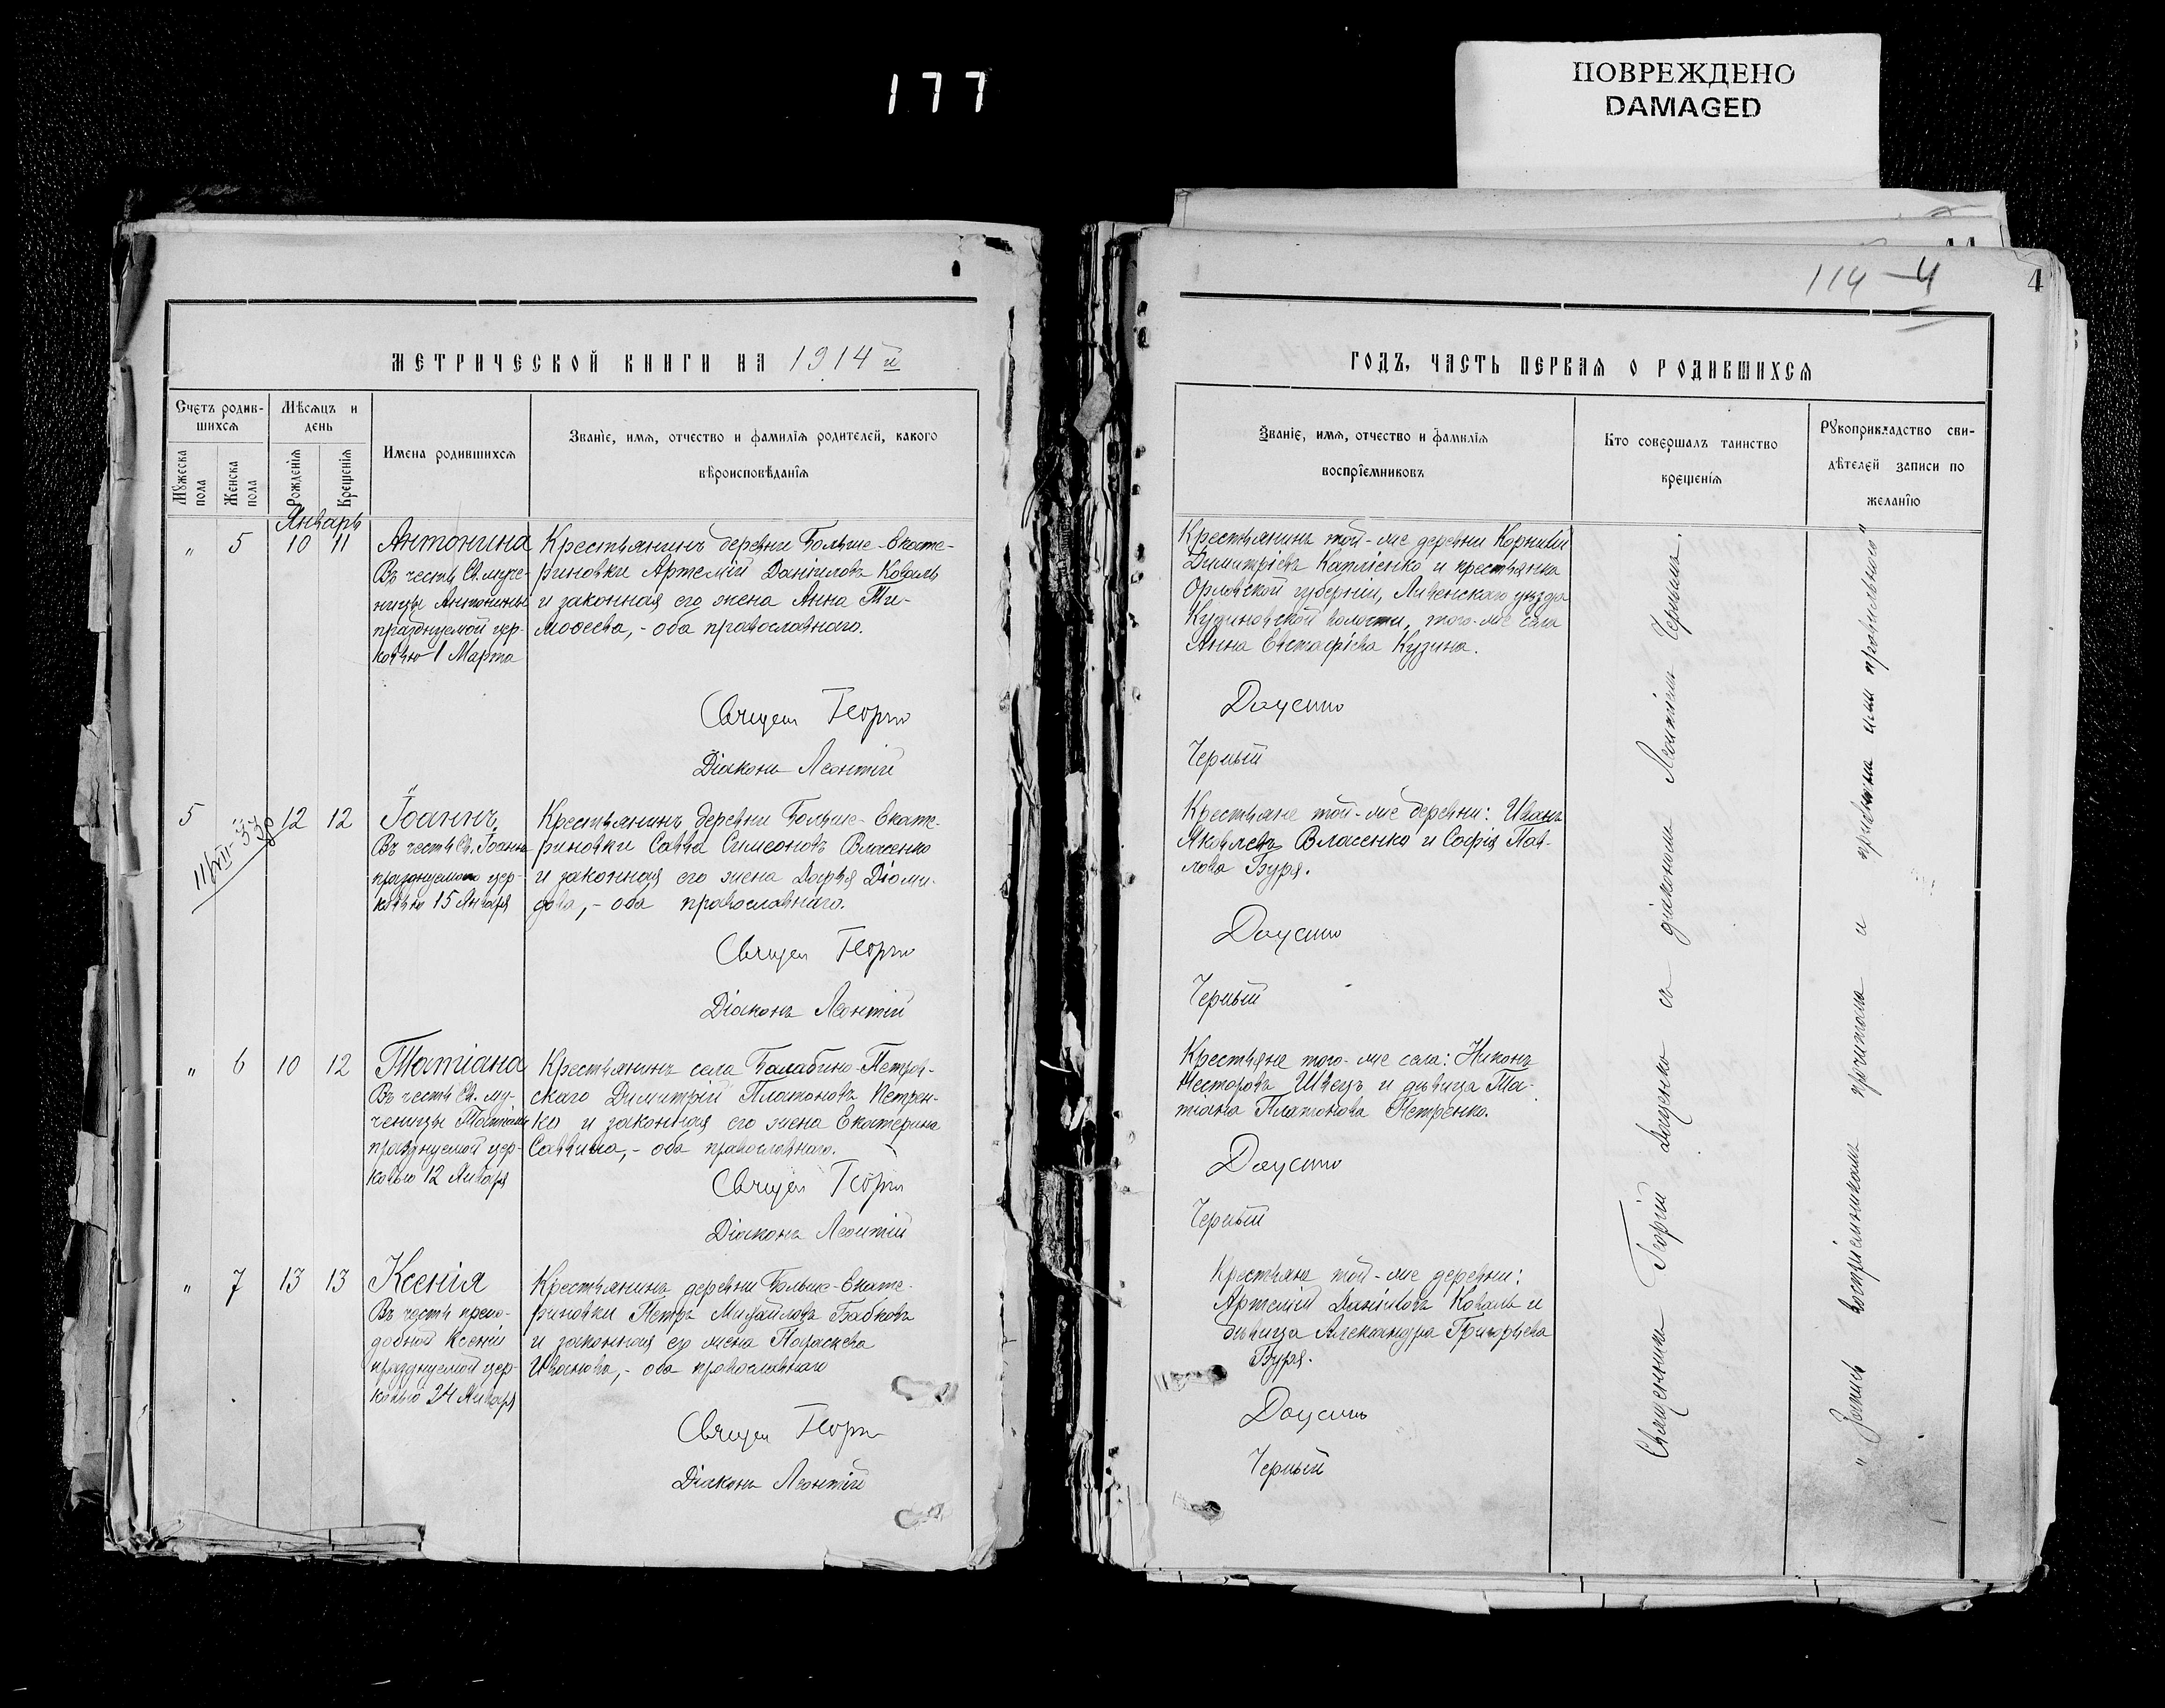 177
ПОВРЕЖДЕНО
DAMAGED
МЕТРИЧЕСКОЙ КНИГИ НА 1914 й
Счетъ родив-
шихся
Мѣсяцъ и
день
Мужеска
пола
Женска
пола
Рожденія
Крещенія
Имена родившихся
Званіе, имя, отчество и фамилія родителей, какого
вѣроисповѣданія
Январь
" 5 10 11
Антонина
Въ честь Св. муче-
ницы Антонины
празднуемой цер-
ковью 1 Марта
Крестьянинъ деревни Больше-Екате-
риновки Артемій Даніиловъ Коваль
и законная его жена Анна Ти-
моѳеева,- оба православнаго.
Священ Георгі
Діаконъ Леонтій
5 " 12 12
11/VII-33
Іоаннъ
Въ честь Св. Іоанна
празднуемаго цер-
ковью 15 Января
Крестьянинъ деревни Больше-Екате-
риновки Савва Симеоновъ Власенко
и законная его жена Дарья Діоми-
дова,- оба православнаго.
Священ Георгі
Діаконъ Леонтій
" 6 10 12
Татіана
Въ честь Св. му-
ченицы Татіаны
празднуемой цер-
ковью 12 Января
Крестьянинъ села Балабино-Петров-
скаго Димитрій Платоновъ Петрен-
ко и законная его жена Екатерина
Саввина,- оба православнаго.
Священ Георгі
Діаконъ Леонтій
" 7 13 13
Ксенія
Въ честь препо-
добной Ксеніи
празднуемой цер-
ковью 24 Января
Крестьянинъ деревни Больше-Екате-
риновки Петръ Михайловъ Бабковъ
и законная его жена Параскева
Иванова,- оба православнаго
Священ Георгі
Діаконъ Леонтій
114-4
4
ГОДЪ, ЧАСТЬ ПЕРВАЯ О РОДИВШИХСЯ
Званіе, имя, отчество и фамилія
воспріемниковъ
Кто совершалъ таинство
крещенія
Рукоприкладство сви-
дѣтелей записи по
желанію
Крестьянинъ той-же деревни Корнилій
Димитріевъ Каплієнко и крестьянка
Орловской губерніи, Ливенскаго уѣзда
волости, того-же села
Анна Евстафіева Кузина.
Доценко
Черный
Крестьяне той-же деревни: Иванъ
Яковлевъ Власенко и Софія Пав-
лова Буря.
Доценко
Черный
Крестьяне того-же села: Никонъ
Несторовъ Швецъ и дѣвица Та-
тіана Платонова Петренко.
Доценко
Черный
Крестьяне той-же деревни:
Артемій Даніиловъ Коваль и
дѣвица Александра Григорьева
Буря.
Доценко
Черный
Священникъ Георгій Доценко съ діакономъ Леонтіемъ Чернымъ.
"Запись воспріемникамъ прочитана и признана ими правильною"